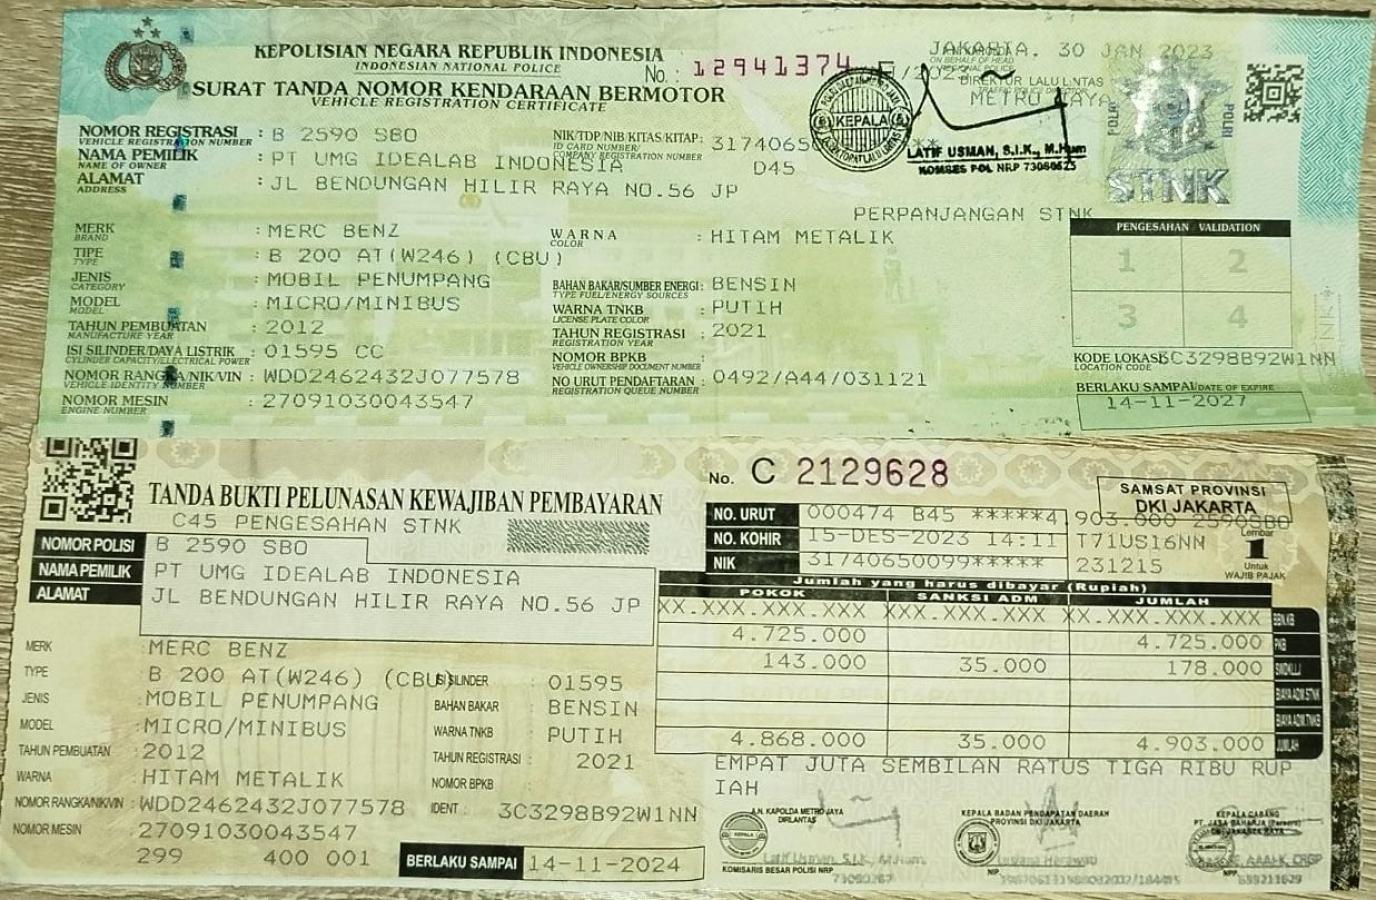 KEPOLISIAN NEGARA REPUBLIK INDONESIA
INDONESIAN NATIONAL POLICE
No. : 12941374
JAKARTA. 30 JAN 2023
ON BEHALF OF HEAD
DIREKTUR LALU LINTAS
METRO JAYA
SURAT TANDA NOMOR KENDARAAN BERMOTOR
VEHICLE REGISTRATION CERTIFICATE
KEPALA
LATIF USMAN, S.I.K., M.Hum
KOMBES POL NRP 73080625
POLRI POLRI
STNK
NOMOR REGISTRASI : B 2590 SBO
VEHICLE REGISTRATION NUMBER
NIK/TDP/NIB/KITAS/KITAP: 3174065
ID CARD NUMBER/
COMPANY REGISTRATION NUMBER
D45
NAMA PEMILIK : PT UMG IDEALAB INDONESIA
NAME OF OWNER
ALAMAT : JL BENDUNGAN HILIR RAYA NO.56 JP
ADDRESS
PERPANJANGAN STNK
MERK : MERC BENZ
BRAND
WARNA : HITAM METALIK
COLOR
TIPE : B 200 AT(W246) (CBU)
TYPE
JENIS : MOBIL PENUMPANG
CATEGORY
BAHAN BAKAR/SUMBER ENERGI : BENSIN
TYPE FUEL/ENERGY SOURCES
MODEL : MICRO/MINIBUS
MODEL
WARNA TNKB : PUTIH
LICENSE PLATE COLOR
TAHUN PEMBUATAN : 2012
MANUFACTURE YEAR
TAHUN REGISTRASI : 2021
REGISTRATION YEAR
ISI SILINDER/DAYA LISTRIK : 01595 CC
CYLINDER CAPACITY/ELECTRICAL POWER
NOMOR BPKB :
VEHICLE OWNERSHIP DOCUMENT NUMBER
NOMOR RANGKA/NIK/VIN : WDD2462432J077578
VEHICLE IDENTITY NUMBER
NO URUT PENDAFTARAN : 0492/A44/031121
REGISTRATION QUEUE NUMBER
NOMOR MESIN : 27091030043547
ENGINE NUMBER
PENGESAHAN VALIDATION
1 2
3 4
KODE LOKASI 3C3298B92W1NN
LOCATION CODE
BERLAKU SAMPAI DATE OF EXPIRE
14-11-2027
TANDA BUKTI PELUNASAN KEWAJIBAN PEMBAYARAN
C45 PENGESAHAN STNK
No. C 2129628
SAMSAT PROVINSI
DKI JAKARTA
NOMOR POLISI B 2590 SBO
NAMA PEMILIK PT UMG IDEALAB INDONESIA
ALAMAT JL BENDUNGAN HILIR RAYA NO.56 JP
NO. URUT 000474 B45 *****4.903.000 2590SBO
NO. KOHIR 15-DES-2023 14:11 T71US16NN
NIK 31740650099***** 231215
Lembar
1
Untuk
WAJIB PAJAK
Jumlah yang harus dibayar (Rupiah)
POKOK SANKSI ADM JUMLAH
XX.XXX.XXX.XXX XXX.XXX.XXX XX.XXX.XXX.XXX BBN.KB
4.725.000 4.725.000 PKB
143.000 35.000 178.000 SWDKLLJ
BIAYA ADM.STNK
BIAYA ADM.TNKB
4.868.000 35.000 4.903.000 JUMLAH
EMPAT JUTA SEMBILAN RATUS TIGA RIBU RUP
IAH
MERK : MERC BENZ
TYPE : B 200 AT(W246) (CBU)
ISI SILINDER : 01595
JENIS : MOBIL PENUMPANG
BAHAN BAKAR : BENSIN
MODEL : MICRO/MINIBUS
WARNA TNKB : PUTIH
TAHUN PEMBUATAN : 2012
TAHUN REGISTRASI : 2021
WARNA : HITAM METALIK
NOMOR BPKB :
NOMOR RANGKA/NIK/VIN : WDD2462432J077578
IDENT : 3C3298B92W1NN
NOMOR MESIN : 27091030043547
299 400 001
BERLAKU SAMPAI 14-11-2024
A.N. KAPOLDA METRO JAYA
DIRLANTAS
Latif Usman, S.I.K., M.Hum.
KOMISARIS BESAR POLISI NRP
KEPALA BADAN PENDAPATAN DAERAH
PROVINSI DKI JAKARTA
NIP
KEPALA CABANG
PT. JASA RAHARJA (Persero)
NPP